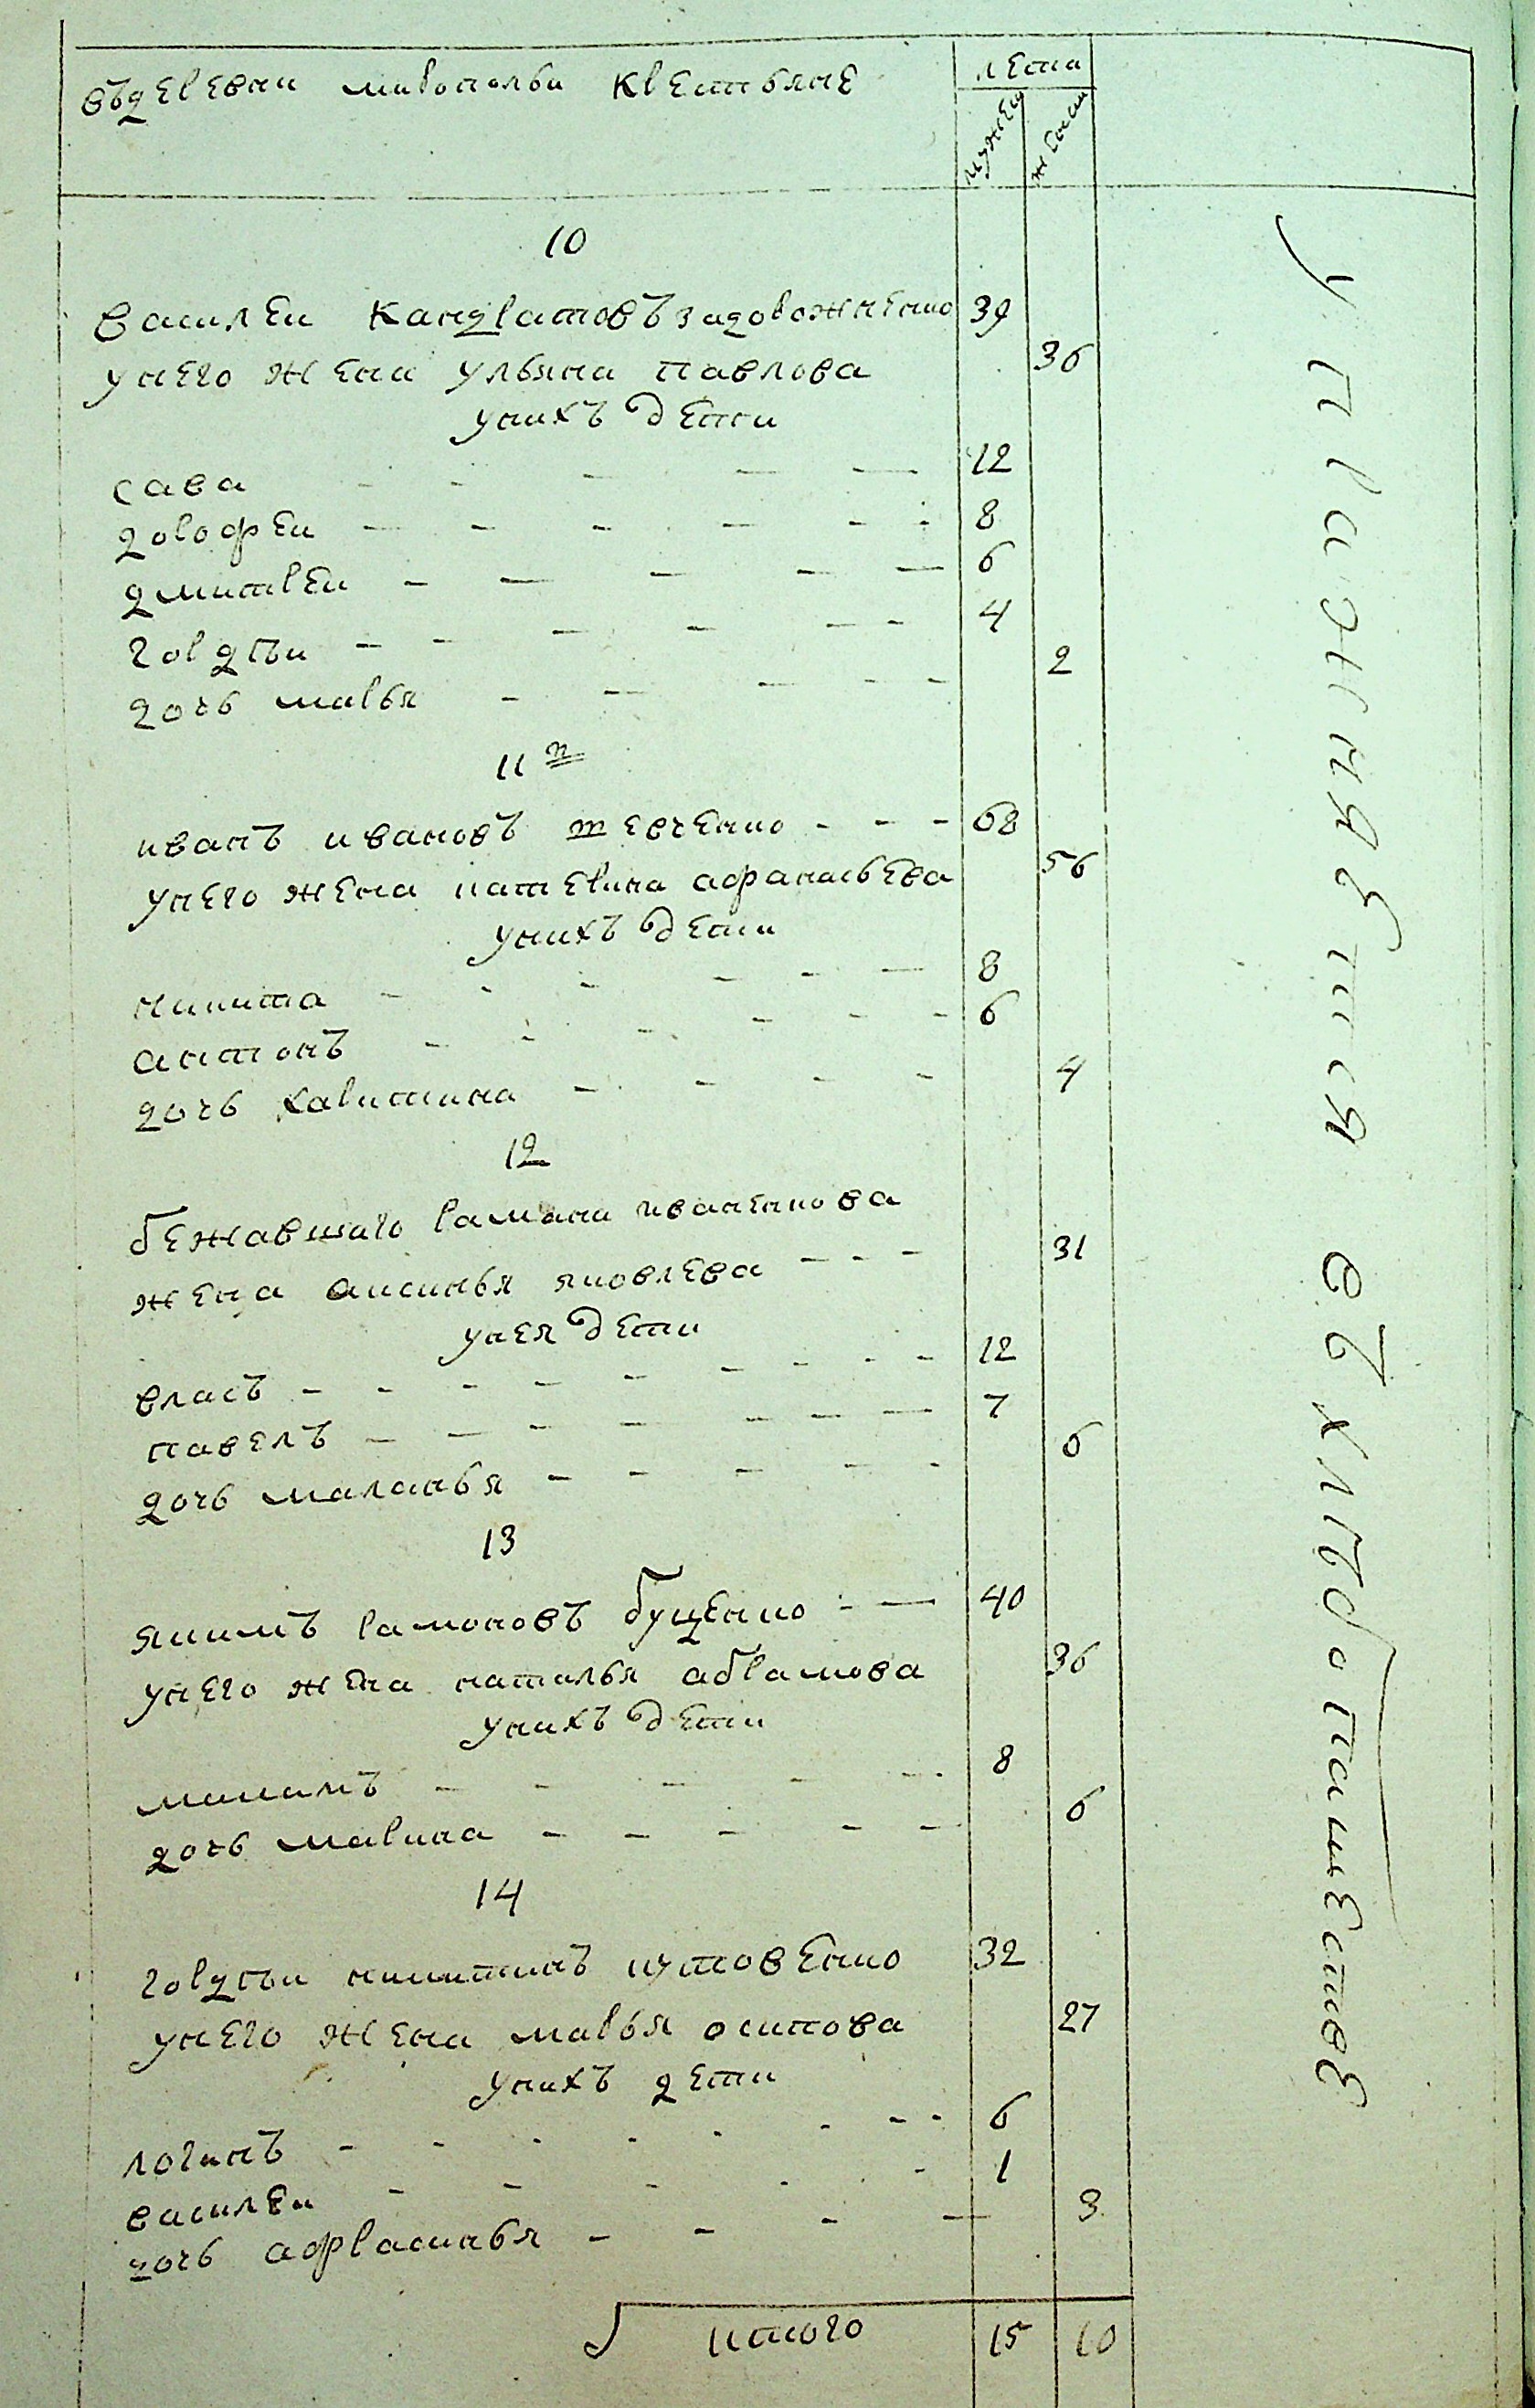 въ деревни миропольи крестьяне
лета
мужеска
женска
10
василеи кандратовъ задорожненко 39
у него жена ульяна павлова 36
у нихъ дети
сава 12
дорофеи 8
дмитреи 6
гордѣи 4
дочь марья 2
11
иванъ ивановъ шевченко 68
у него жена катерина афанасьева 56
у нихъ дети
никита 8
антонъ 6
дочь харитина 4
12
бежавшаго рамана иваненкова
жена аксинья яковлева 31
у нея дети
власъ 12
павелъ 7
дочь маланья 6
13
якимъ рамоновъ буценко 40
у него жена наталья абрамова 36
у нихъ дети
максимъ 8
дочь марина 6
14
гордѣи никитинъ кутовенко 32
у него жена марья осипова 27
у нихъ дети
логинъ 6
василеи 1
дочь афрасинья 3
итого 15 10